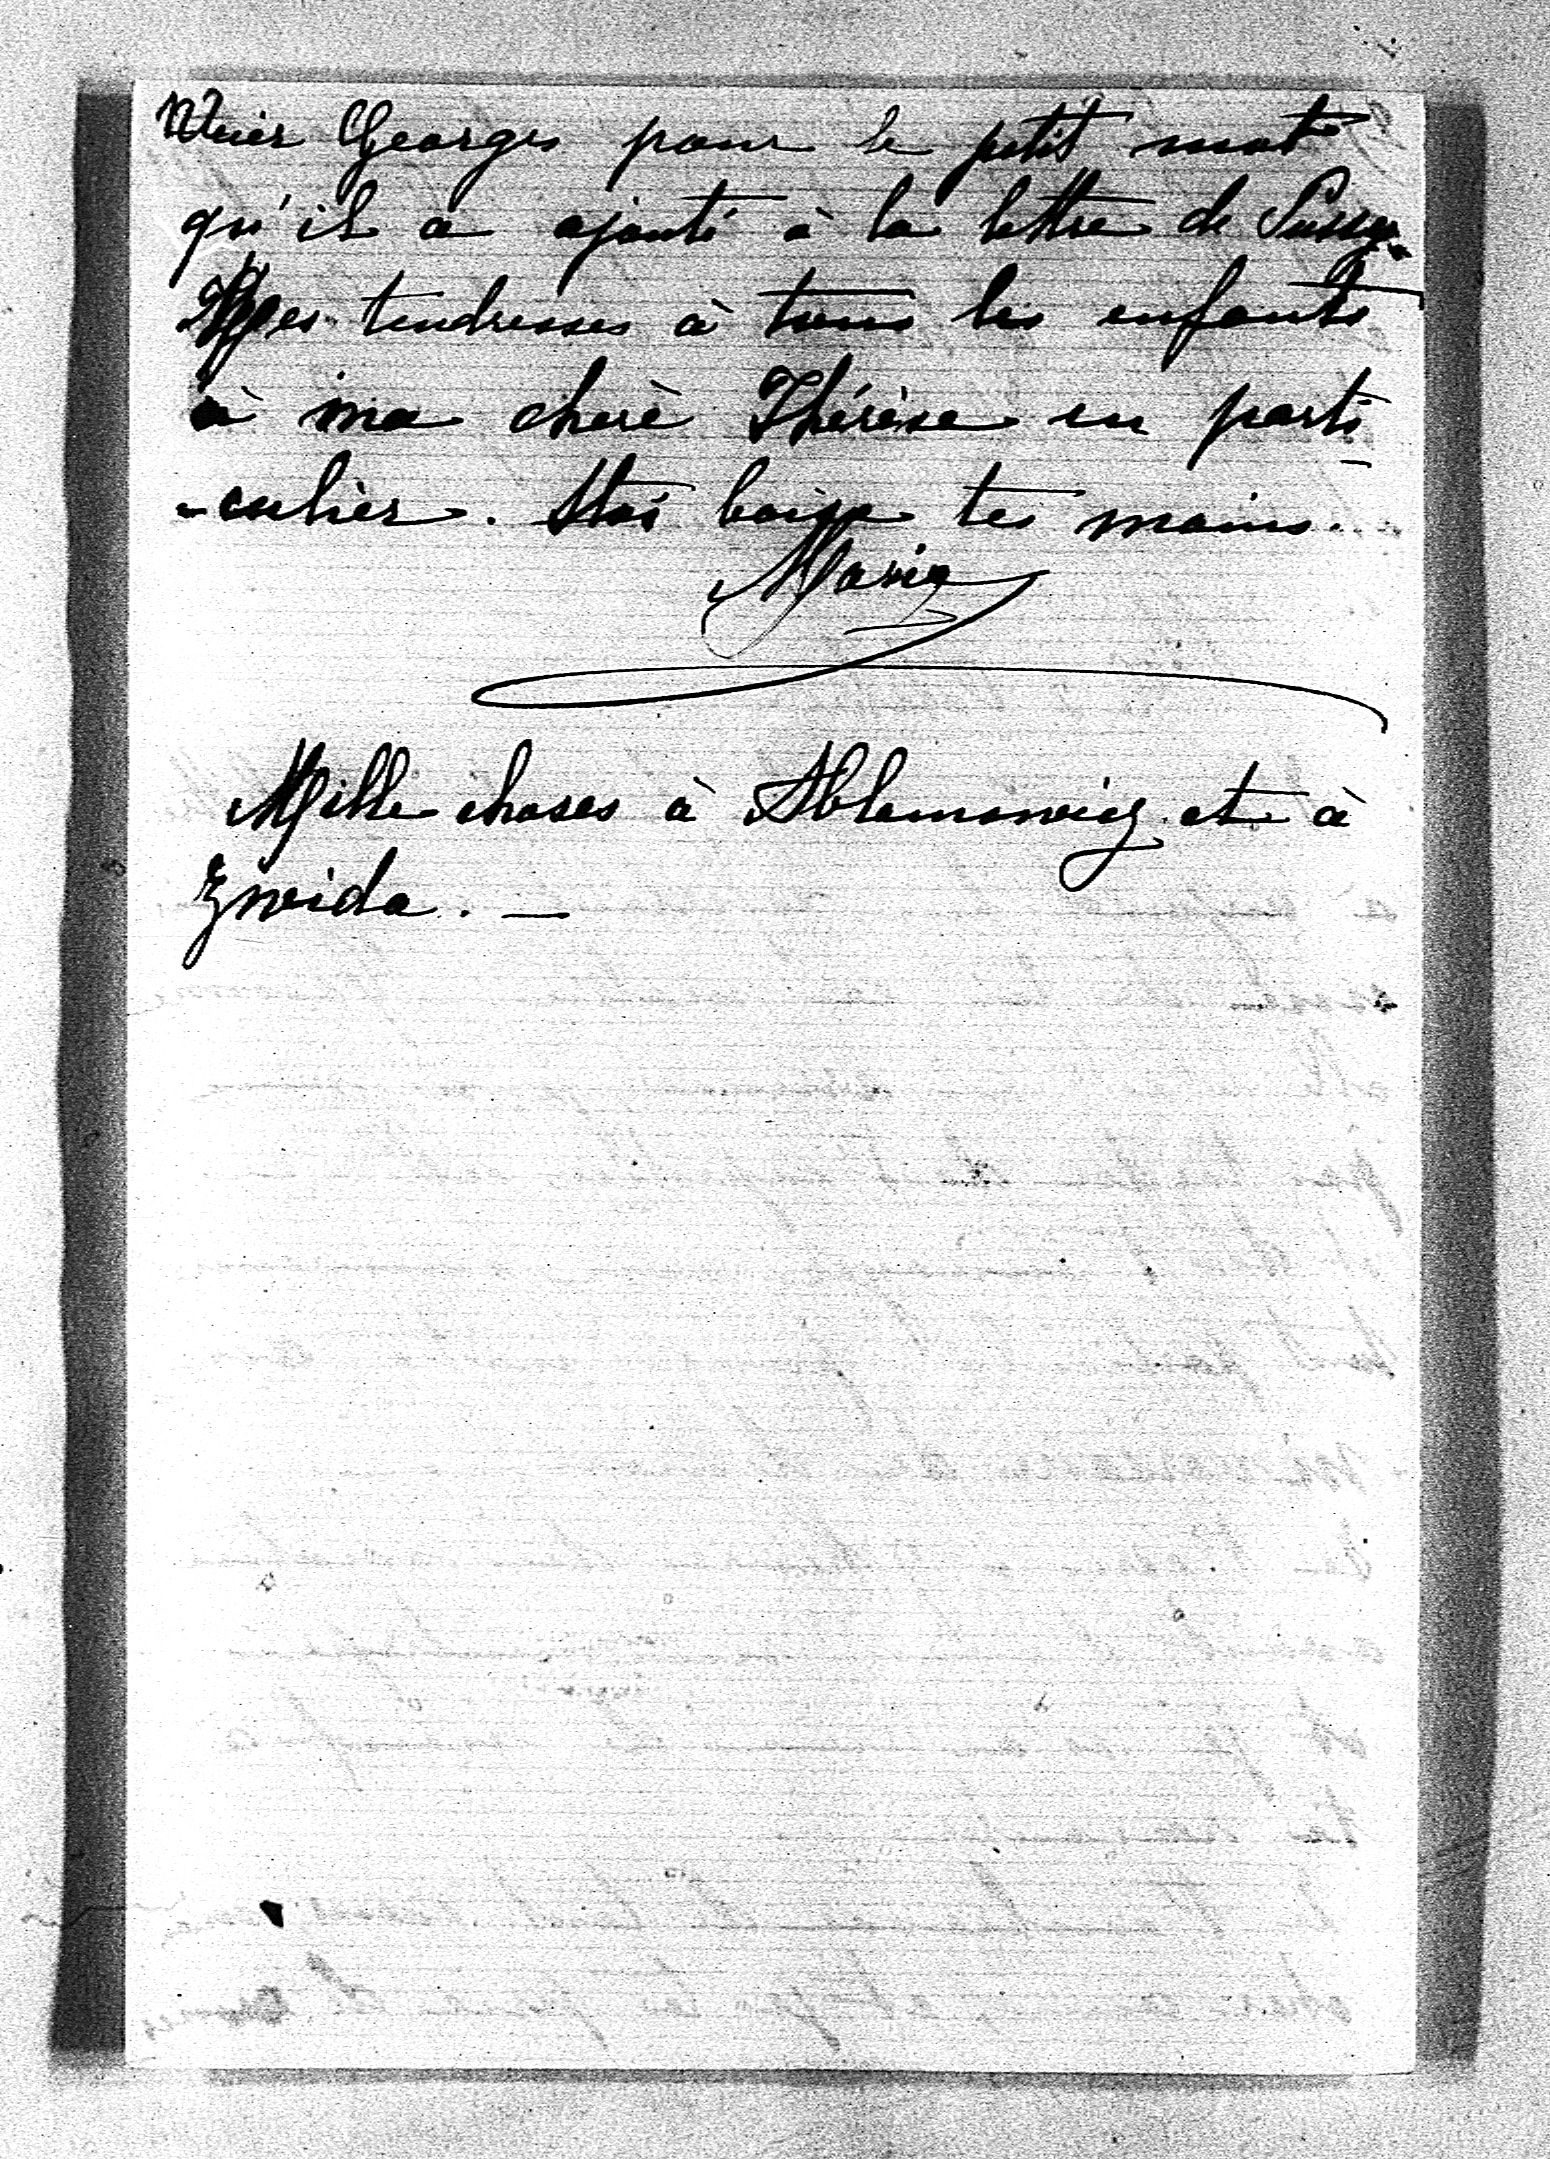 Georges pour le petit mot
qu'il a ajouté à la lettre de
Mes tendresses à tous les enfants
à ma chère Thérèse en parti
-culier. Moi baise tes mains.
Marie
Mille choses à Ablamowicz et à
Zwida. —